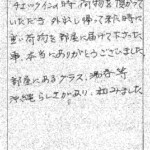 チェックインの時、荷物を預かって
いただき 外出し帰って来た時に
重い荷物を部屋に届けて下さった
事、本当にありがとうございました。
部屋にあるグラス、湯呑等
沖縄らしさがあり、和みました。